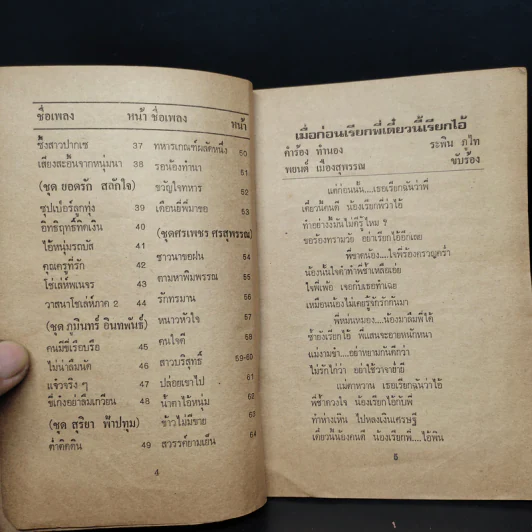 ชื่อเพลง หน้า
ซึ้งสาวปากเซ 37
เสียงสะอื้นจากหนุ่มนา 38
(ชุด ยอดรัก สลักใจ)
ซุปเป้อร์ลูกทุ่ง 39
อิทธิฤทธิ์ทิดเงิน 40
ไอ้หนุ่มรถบัส 41
คุณครูที่รัก 42
โชเล่ห์พเนจร 43
วาสนาโชเล่ห์ภาค 2 44
(ชุด ภูมินทร์ อินทพันธ์)
คนมีขี่เรือบรือ 45
ไม่น่าลืมนัด 46
แจ๋วจริง ๆ 47
ขี่เก๋งอย่าลืมเกวียน 48
(ชุด สุริยา ฟ้าปทุม)
ค่ำคิดถิ่น 49
ชื่อเพลง หน้า
ทหารเกณฑ์ผลัดหนึ่ง 50
รอน้องทำนา 51
ขวัญใจทหาร 52
เดือนยี่พี่มาขอ 53
(ชุดศรเพชร ศรสุพรรณ)
ชาวนาขอฝน 54
ตามหาพิมพรรณ 55
รักทรมาน 56
หนาวหัวใจ 57
คนใจดี 58
สาวบริสุทธิ์ 59-60
ปล่อยเขาไป 61
น้ำตาไอ้หนุ่ม 62
ข้าวไม่มีขาย 63
สวรรค์ยามเย็น 64
4
เมื่อก่อนเรียกพี่เดี๋ยวนี้เรียกไอ้
คำร้อง ทำนอง ระพิน ภูไท
พยนต์ เมืองสุพรรณ ขับร้อง
แต่ก่อนนั้น....เธอเรียกฉันว่าพี่
เดี๋ยวนี้คนดี น้องเรียกพี่ว่าไอ้
ทำอย่างงี้มันไม่ดีรู้ไหม ?
ขอร้องทรามวัย อย่าเรียกไอ้อีกเลย
พี่ช้ำหมอง....ใจพี่ร้องครวญคร่ำ
น้องนั้นใจดำทำพี่ช้ำเหลือเอ่ย
ใจพี่เพ้อ เจอกับเธอทำเฉย
เหมือนน้องไม่เคยรู้จักรักกันมา
พี่หม่นหมอง....น้องมาลืมพี่ได้
ซ้ำยังเรียกไอ้ พี่แสนจะอายหนักหนา
แม่งามขำ....อย่าหยามกันดีกว่า
ไม่รักไม่ว่า อย่าใช้วาจาย่ำยี
แม่ตาหวาน เธอเรียกฉันว่าไอ้
พี่ช้ำดวงใจ น้องเรียกไอ้กับพี่
ทำห่างเหิน ไปหลงเงินเศรษฐี
เดี๋ยวนี้น้องคนดี น้องเรียกพี่....ไอ้พิน
5